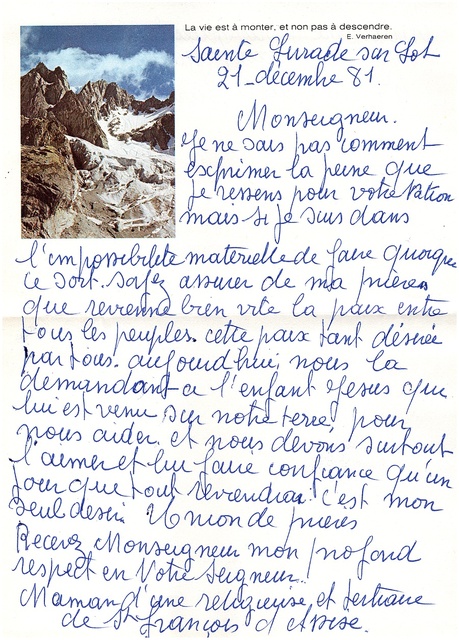 La vie est à monter, et non pas à descendre.
E. Verhaeren
Sainte Livrade sur Lot
21 décembre 81.
Monseigneur.
Je ne sais pas comment
exprimer la peine que
je ressens pour votre Nation
mais si je suis dans
l'impossibilité matérielle de faire quoique
ce soit. soyez assurer de ma prière
que revienne bien vite la paix entre
tous les peuples. cette paix tant désirée
par tous. aujourd'hui, nous la
demandant a l'enfant Jesus que
lui est venu sur notre terre, pour
nous aider. et nous devons surtout
l'aimer et lui faire confiance qu'un
jour que tout reviendra. c'est mon
seul desir. Union de prières
Recevez Monseigneur mon profond
respect en Notre Seigneur.
Maman d'une religieuse, et tertiaire
de St François d'Assise.